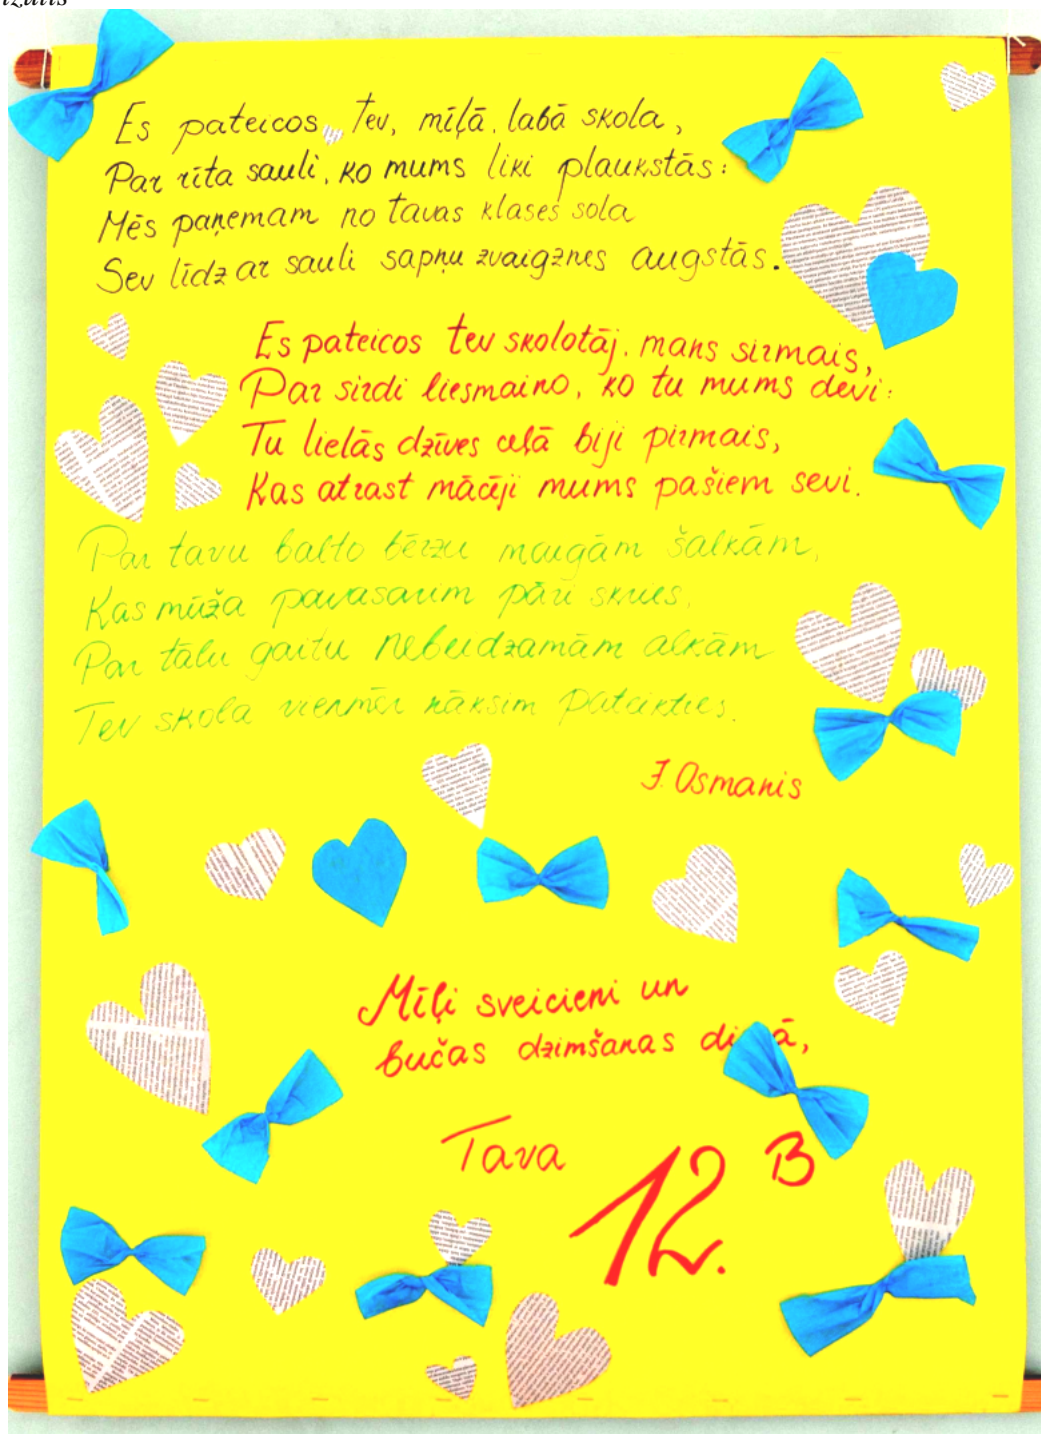 Es pateicos Tev, mīļā, labā skola,
Par rīta sauli, ko mums liki plaukstās:
Mēs paņemam no tavas klases sola
Sev līdz ar sauli sapņu zvaigznes augstās.
Es pateicos tev skolotāj, mans sirmais,
Par sirdi liesmaino, ko tu mums devi:
Tu lielās dzīves ceļā biji pirmais,
Kas atrast mācīji mums pašiem sevi.
Par tavu balto bērzu maigām šalkām,
Kas mūža pavasarim pāri skries,
Par tālu gaitu nebeidzamām alkām
Tev skola vienmēr nāksim pateikties.
J. Osmanis
Mīļi sveicieni un
bučas dzimšanas dienā,
Tava 12. B